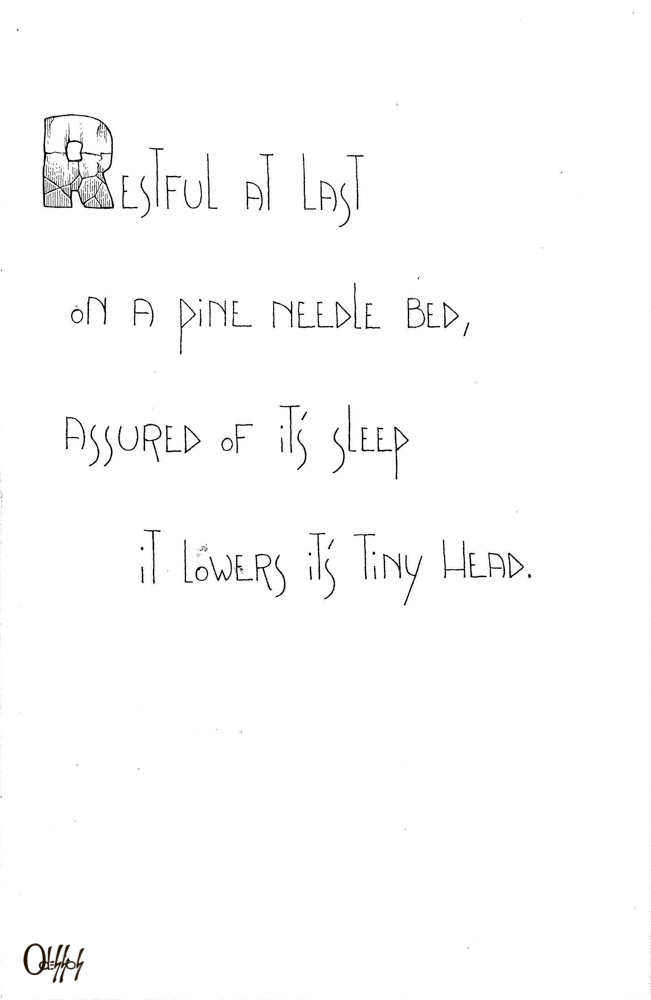 RESTFUL AT LAST
ON A PiNE NEEDLE BED,
ASSURED OF iT'S SLEEP
iT LOWERS iT'S TiNY HEAD.